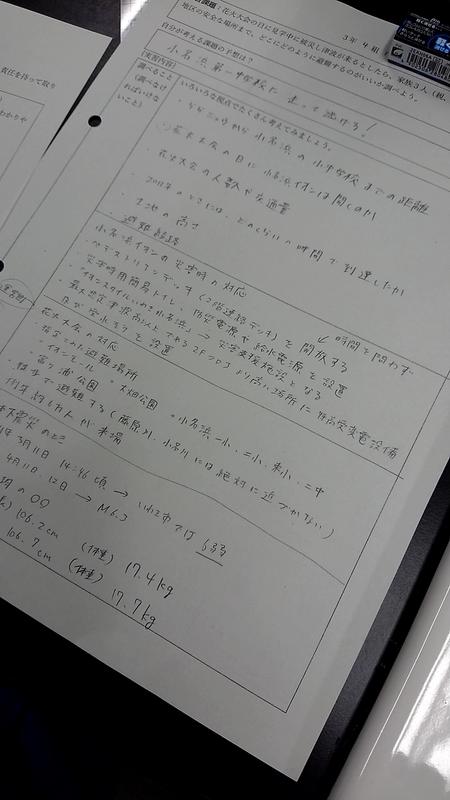 課題：花火大会の日に見学中に被災し津波が来るとしたら、家族3人（祖
地区の安全な場所まで、どこにどのように避難するのがいいか調べよう。
3年4組
自分が考える課題の予想は？
小名浜第一中学校に走って逃げる！
（実習内容）
調べること
（調べなければいけないこと）
いろいろな視点でたくさん考えてみましょう。
から小名浜の小中学校までの距離
花火大会の日に小名浜イオンは開くのか
・花火大会の人数や交通量
・2011年のときには、どのくらいの時間で到達したか
・土地の高さ
・避難経路
小名浜イオンの災害時の対応
↙時間を問わず
・ペデストリアンデッキ（2階連絡デッキ）を開放する
・災害時用簡易トイレ、防災電源や給水電源を設置
・イオンスタイルいわき小名浜、→災害支援施設となる
・最大想定津波高以上である2Fフロアより高い場所に特高受変電設備
及び受水そうを設置
花火大会の対応
・指定された避難場所
・イオンモール ・大畑公園 ・小名浜一小、二小、東小、二中
・富ヶ浦公園
・徒歩で避難する（藤原川、小名川には絶対に近づかない）
約6万人が来場
大震災のとき
年3月11日 14:46頃 → いわき市では 6弱
4月11日、12日 → M6.3
106.2cm （体重） 17.4kg
106.7cm （体重） 17.7kg
責任を持って取り
わかりや
運営面